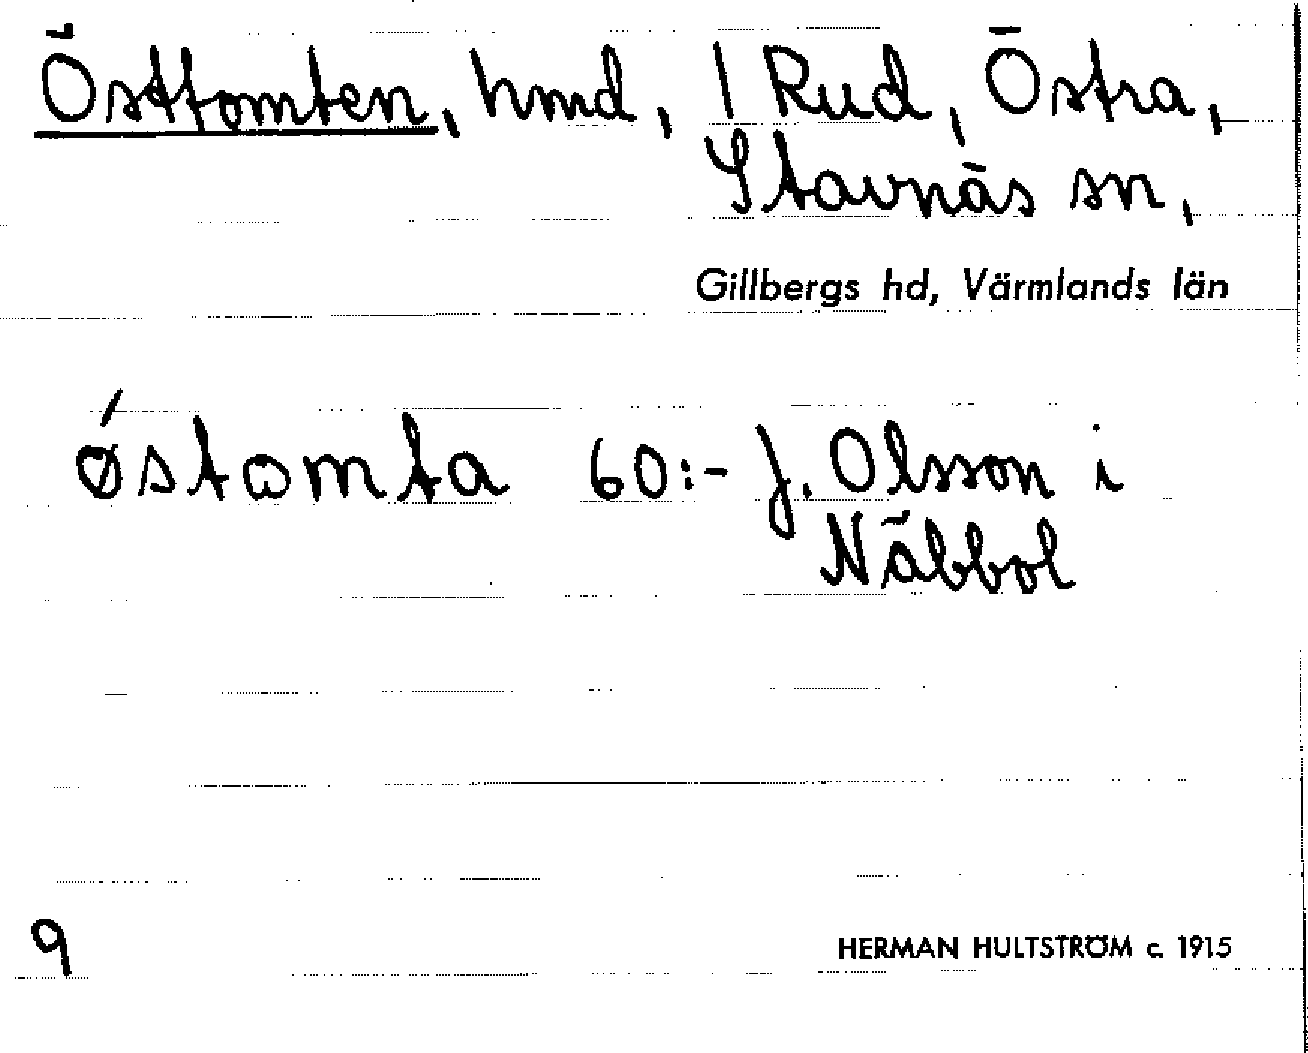 Östtomten, hmd, 1 Rud, Östra,
Stavnäs sn,
Gillbergs hd, Värmlands län
ǿstωmta 60:- J. Olsson i
Näbbol
9
HERMAN HULTSTRÖM c. 1915